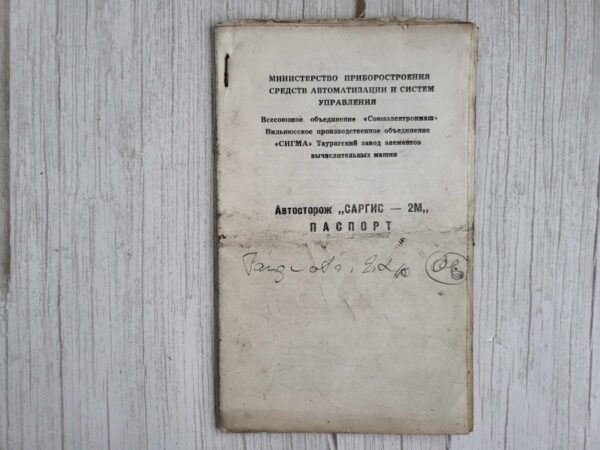 МИНИСТЕРСТВО ПРИБОРОСТРОЕНИЯ
СРЕДСТВ АВТОМАТИЗАЦИИ И СИСТЕМ
УПРАВЛЕНИЯ
Всесоюзное объединение «Союзэлектронмаш»
Вильнюсское производственное объединение
«СИГМА» Таурагский завод элементов
вычислительных машин
Автосторож „САРГИС — 2М„
ПАСПОРТ